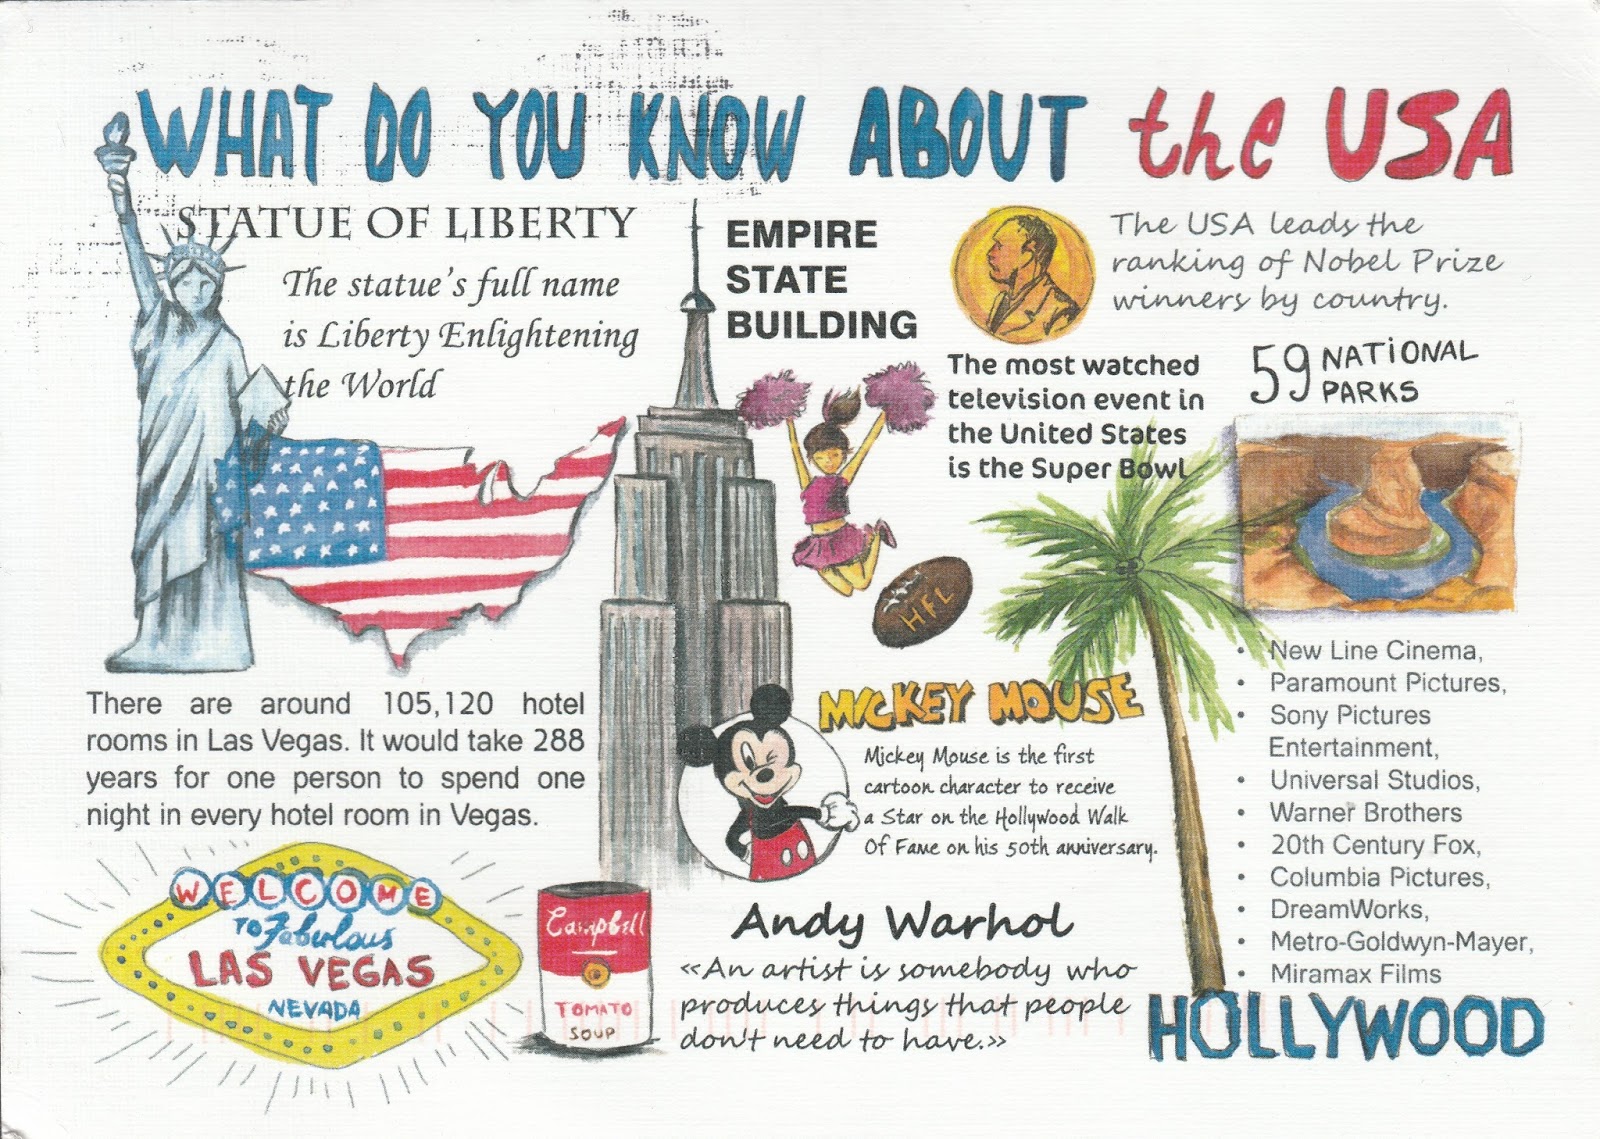 WHAT DO YOU KNOW ABOUT the USA
STATUE OF LIBERTY
The statue's full name
is Liberty Enlightening
the World
EMPIRE
STATE
BUILDING
The USA leads the
ranking of Nobel Prize
winners by country.
The most watched
television event in
the United States
is the Super Bowl
59 NATIONAL
PARKS
HFL
There are around 105,120 hotel
rooms in Las Vegas. It would take 288
years for one person to spend one
night in every hotel room in Vegas.
MICKEY MOUSE
Mickey Mouse is the first
cartoon character to receive
a Star on the Hollywood Walk
Of Fame on his 50th anniversary.
• New Line Cinema,
• Paramount Pictures,
• Sony Pictures
Entertainment,
• Universal Studios,
• Warner Brothers
• 20th Century Fox,
• Columbia Pictures,
• DreamWorks,
• Metro-Goldwyn-Mayer,
• Miramax Films
HOLLYWOOD
WELCOME
TO Fabulous
LAS VEGAS
NEVADA
Campbell
TOMATO
SOUP
Andy Warhol
«An artist is somebody who
produces things that people
don't need to have.»